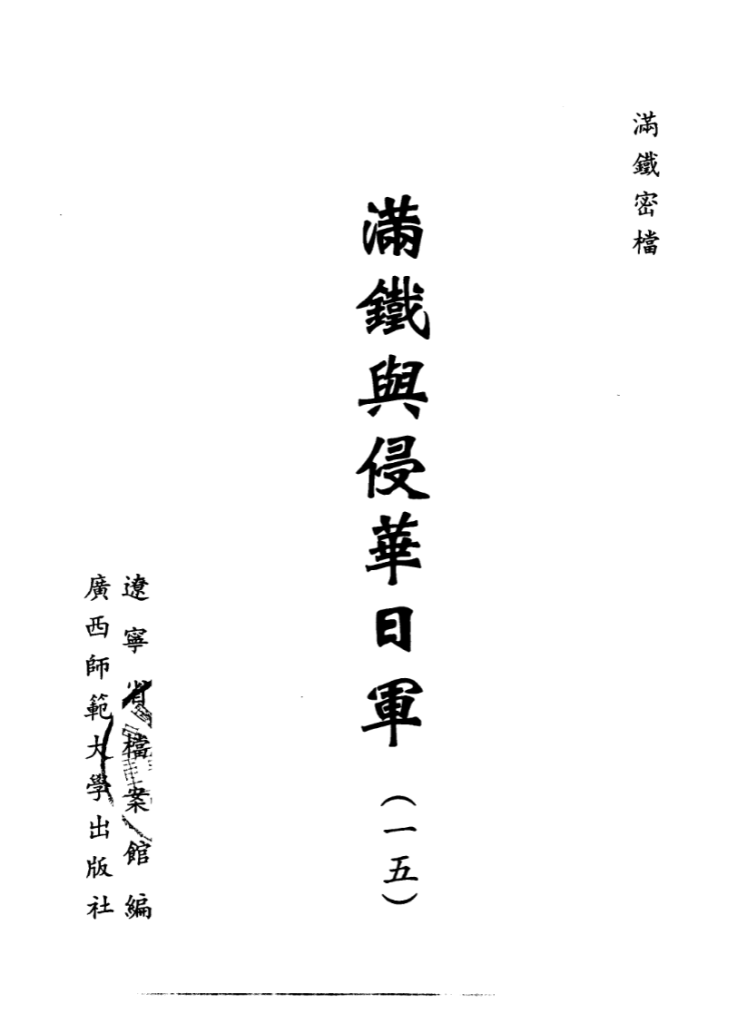 滿鐵密檔
滿鐵與侵華日軍（一五）
遼寧省檔案館編
廣西師範大學出版社